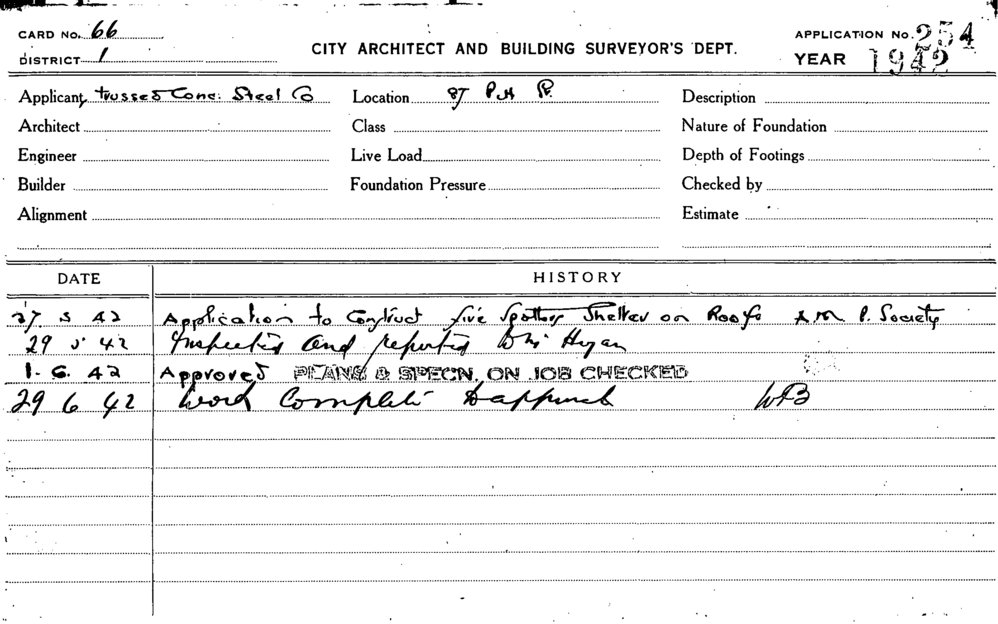 CARD No. 66
DISTRICT 1
CITY ARCHITECT AND BUILDING SURVEYOR'S DEPT.
APPLICATION No. 254
YEAR 1942
Applicant Trussed Conc: Steel Co Location 87 P.H. Description
Architect Class Nature of Foundation
Engineer Live Load Depth of Footings
Builder Foundation Pressure Checked by
Alignment Estimate
DATE HISTORY
27 5 42 Application to Construct fire Spotters Shelter on Roofs P. Society
29 5 42 Inspected and reported
1. 6. 42 Approved PLANS & SPECN. ON JOB CHECKED
29 6 42 Work Complete WB